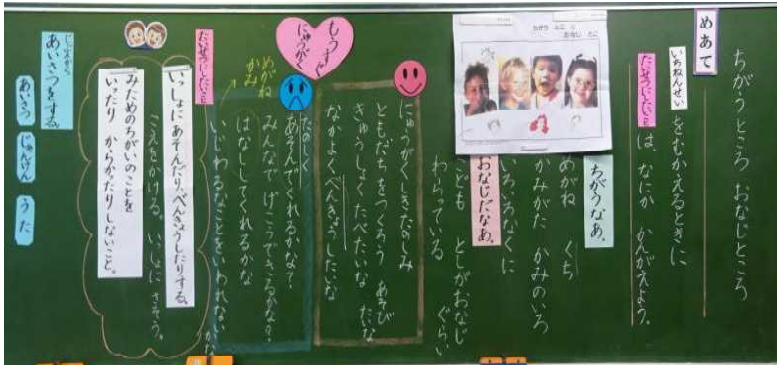 ちがうところ おなじところ
めあて
いちねんせいをむかえるときに、
たいせつにしたいことは、なにか かんがえよう。
ちがう とこ と
おなじ とこ
ちがうなあ。
めがね くち
かみがた かみのいろ
いろいろなくに
おなじだなあ。
こども としがおなじ ぐらい
わらっている
にゅうがくしきたのしみ
ともだちをつくろう あそびたいな
きゅうしょくたべたいな
なかよくべんきょうしたいな
もうすぐ
にゅうがく
たのしく
あそんでくれるかな?
みんなで げこうできるかな?
はなししてくれるかな
いじわるなことをいわれないかな
めがね
かみ
たいせつにしたいこと
いっしょにあそんだり、べんきょうしたりする。
こえをかける。いっしょに さそう。
みためのちがいのことを
いったり からかったりしないこと。
あいさつをする。
あいさつ
じゃんけん
うた